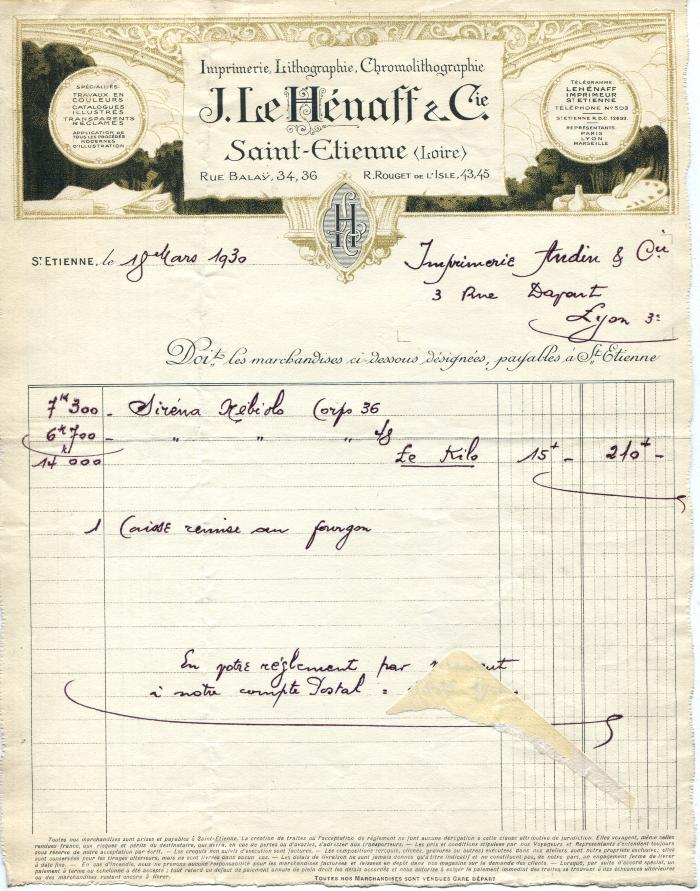 Imprimerie, Lithographie, Chromolithographie
J. Le Hénaff & Cie
Saint-Etienne (Loire)
RUE BALAŸ, 34, 36 R. ROUGET DE L'ISLE, 43, 45
SPÉCIALITÉS
TRAVAUX EN
COULEURS
CATALOGUES
ILLUSTRÉS
TRANSPARENTS
RÉCLAMES
APPLICATION DE
TOUS LES PROCÉDÉS
MODERNES
D'ILLUSTRATION
TÉLÉGRAMME:
LEHÉNAFF
IMPRIMEUR
ST ETIENNE
TÉLÉPHONE No 503
ST ETIENNE R.D.C. 12693.
REPRÉSENTANTS:
PARIS
LYON
MARSEILLE
H
ST ETIENNE, le 18 Mars 1930
Imprimerie Audin & Cie
3 Rue Davout
Lyon 3e
Doit les marchandises ci-dessous désignées, payables à St Etienne
7k 300 - Siréna Nébiolo Corps 36
6k 700 - " " " 48
14k 000 Le Kilo 15+ - 210+ -
1 Caisse remise au fourgon
En votre réglement par
à notre compte Postal =
Toutes nos marchandises sont prises et payables à Saint-Etienne. La création de traites ou l'acceptation de réglement ne font aucune dérogation à cette clause attributive de juridiction. Elles voyagent, même celles
vendues franco, aux risques et périls du destinataire, qui devra, en cas de pertes ou d'avaries, s'adresser aux transporteurs. — Les prix et conditions stipulées par nos Voyageurs et Représentants s'entendent toujours
sous réserve de notre acceptation par écrit. — Les croquis non suivis d'exécution sont facturés. — Les compositions
sont conservées pour les tirages ultérieurs, mais ne sont livrées dans aucun cas. — Les délais de livraison ne sont jamais donnés qu'à titre indicatif et ne constituent pas, de notre part, un engagement ferme de livrer
à date fixe. — En cas d'incendie, nous ne prenons aucune responsabilité pour les marchandises facturées et laissées en dépôt dans nos magasins sur la demande des clients. — Lorsque, par suite d'accord spécial, un
paiement à terme ou échelonné a été accepté
ou des marchandises restant encore à livrer.
TOUTES NOS MARCHANDISES SONT VENDUES GARE DÉPART